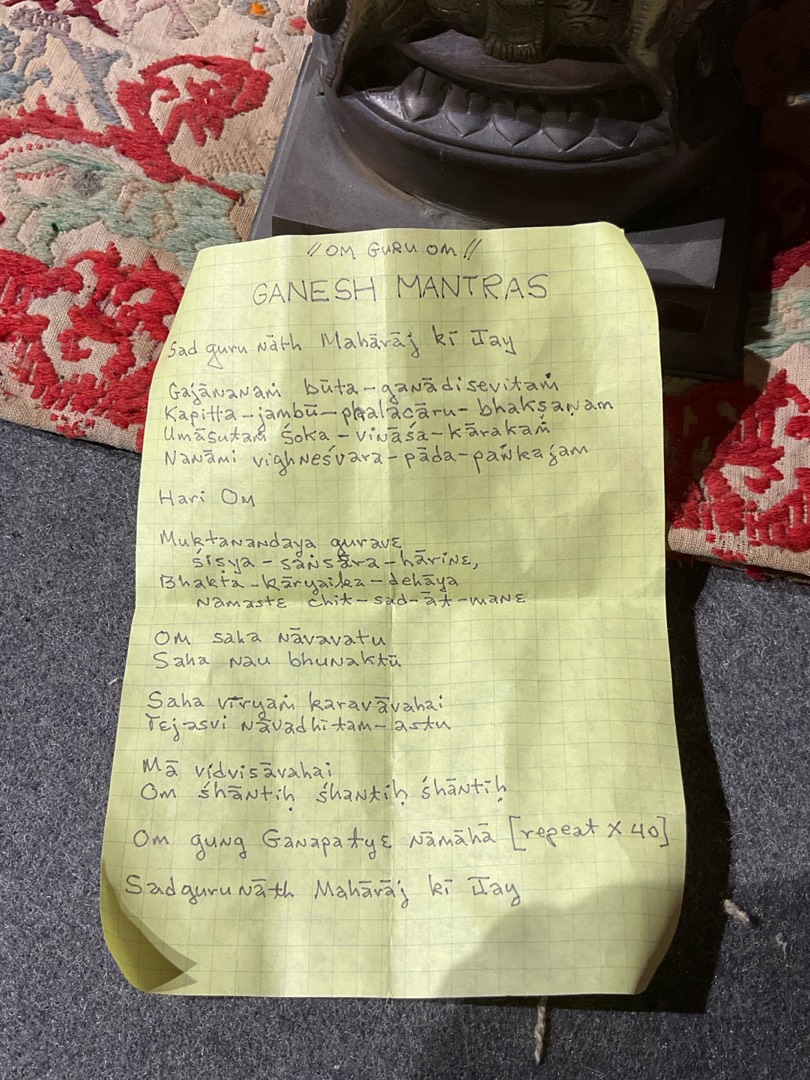 // OM GURU OM //
GANESH MANTRAS
Sad guru nāth Mahārāj kī Jay
Gajānanaṁ būta-gaṇādisevitaṁ
Kapitta-jambū-phalacāru-bhakṣaṇam
Umāsutaṁ śoka-vināśa-kārakaṁ
Nanāmi vighneśvara-pāda-paṅkajam
Hari Om
Muktanandaya gurave
śisya-saṅsāra-hārine,
Bhakta-kāryaika-dehāya
namaste chit-sad-āt-mane
Om saha nāvavatu
Saha nau bhunaktū
Saha vīryaṁ karavāvahai
Tejasvi nāvadhītam-astu
Mā vidvisāvahai
Om śhāntiḥ śhantiḥ śhāntīḥ
Om gung Ganapatye nāmāhā [repeat x 40]
Sadguru nāth Mahārāj kī Jay